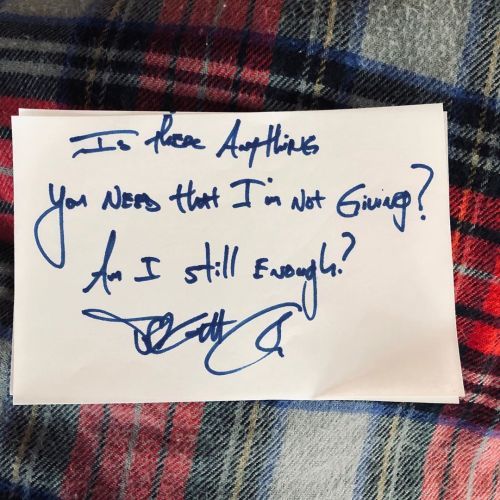 Is there Anything
You Need that I'm Not Giving?
Am I still Enough?